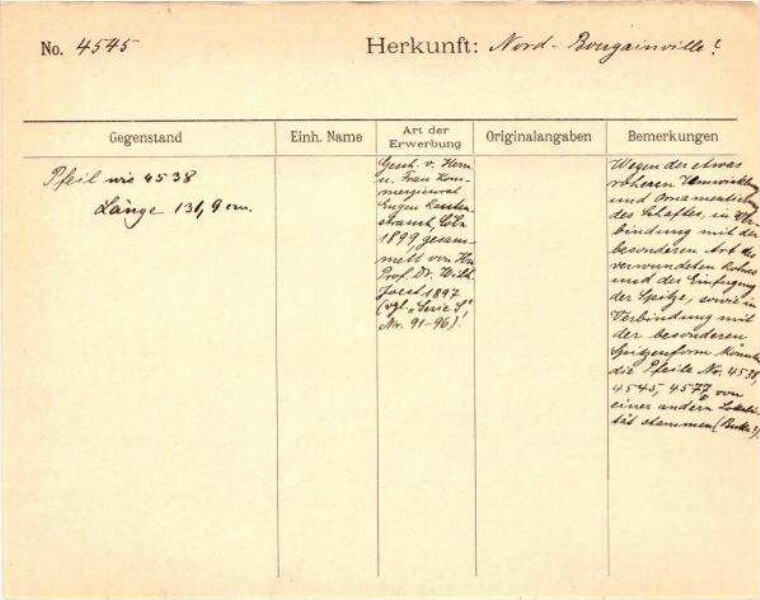 No. 4545 Herkunft: Nord-Bougainville?
Gegenstand
Einh. Name
Art der
Erwerbung
Originalangaben
Bemerkungen
Pfeil wie 4538
Länge 131,9 cm.
Gesch. v. Herrn
u. Frau Kom-
merzienrat
Eugen Rauten-
strauch, Cöln
1899, gesam-
melt von Hn
Prof. Dr. Wilh.
Joest 1897
(vgl. „Serie S",
Nr. 91-96).
Wegen der etwas
roheren Umwicklung
und Ornamentierung
des Schaftes, in Ver-
bindung mit der
besonderen Art des
verwendeten Rohres
und der Einfügung
der Spitze, sowie in
Verbindung mit
der besonderen
Spitzenform könnten
die Pfeile No. 4538,
4545, 4577 von
einer andern Lokali-
tät stammen (Buka?).